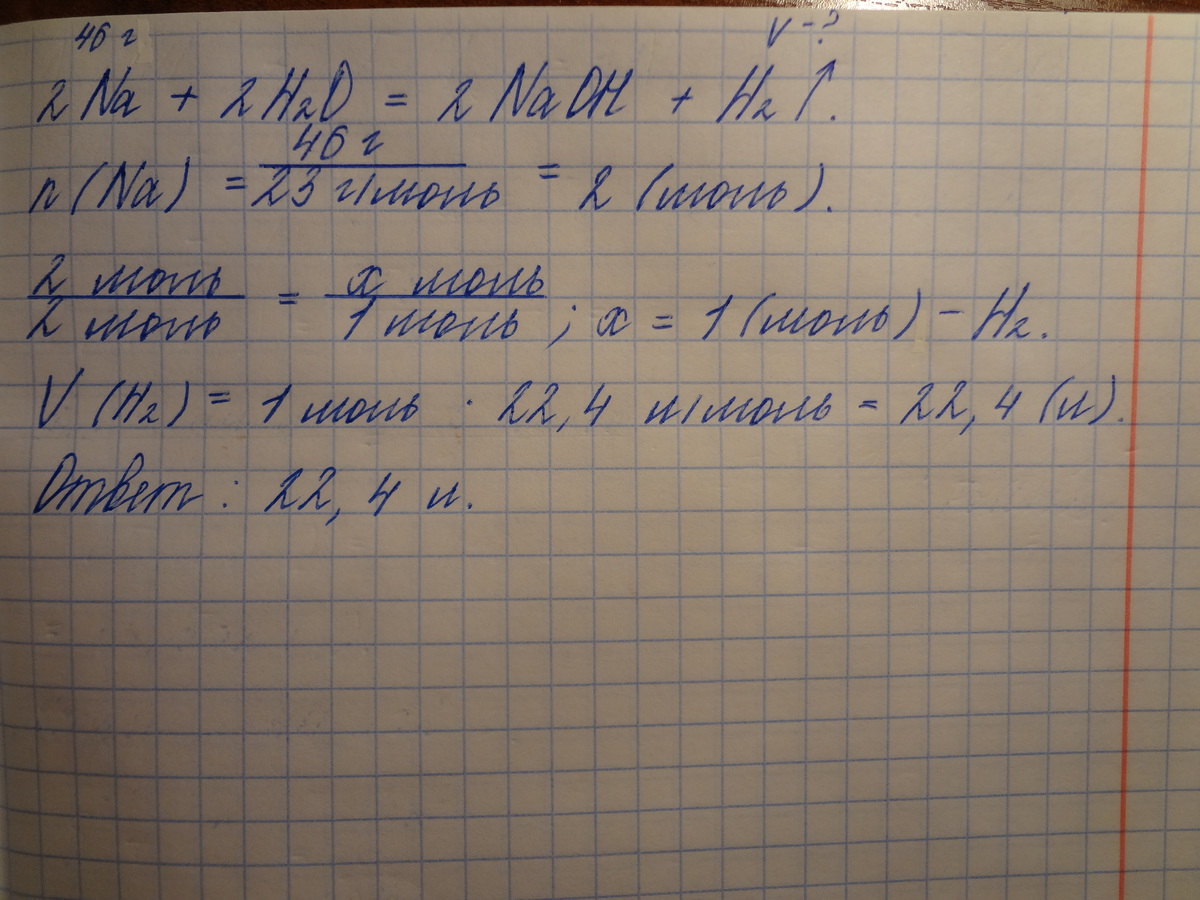 46 г V - ?
2 Na + 2 H₂O = 2 NaOH + H₂↑.
46 г
n (Na) = 23 г/моль = 2 (моль).
2 моль = x моль
2 моль 1 моль ; x = 1 (моль) - H₂.
V (H₂) = 1 моль · 22,4 л/моль = 22,4 (л).
Ответ : 22,4 л.